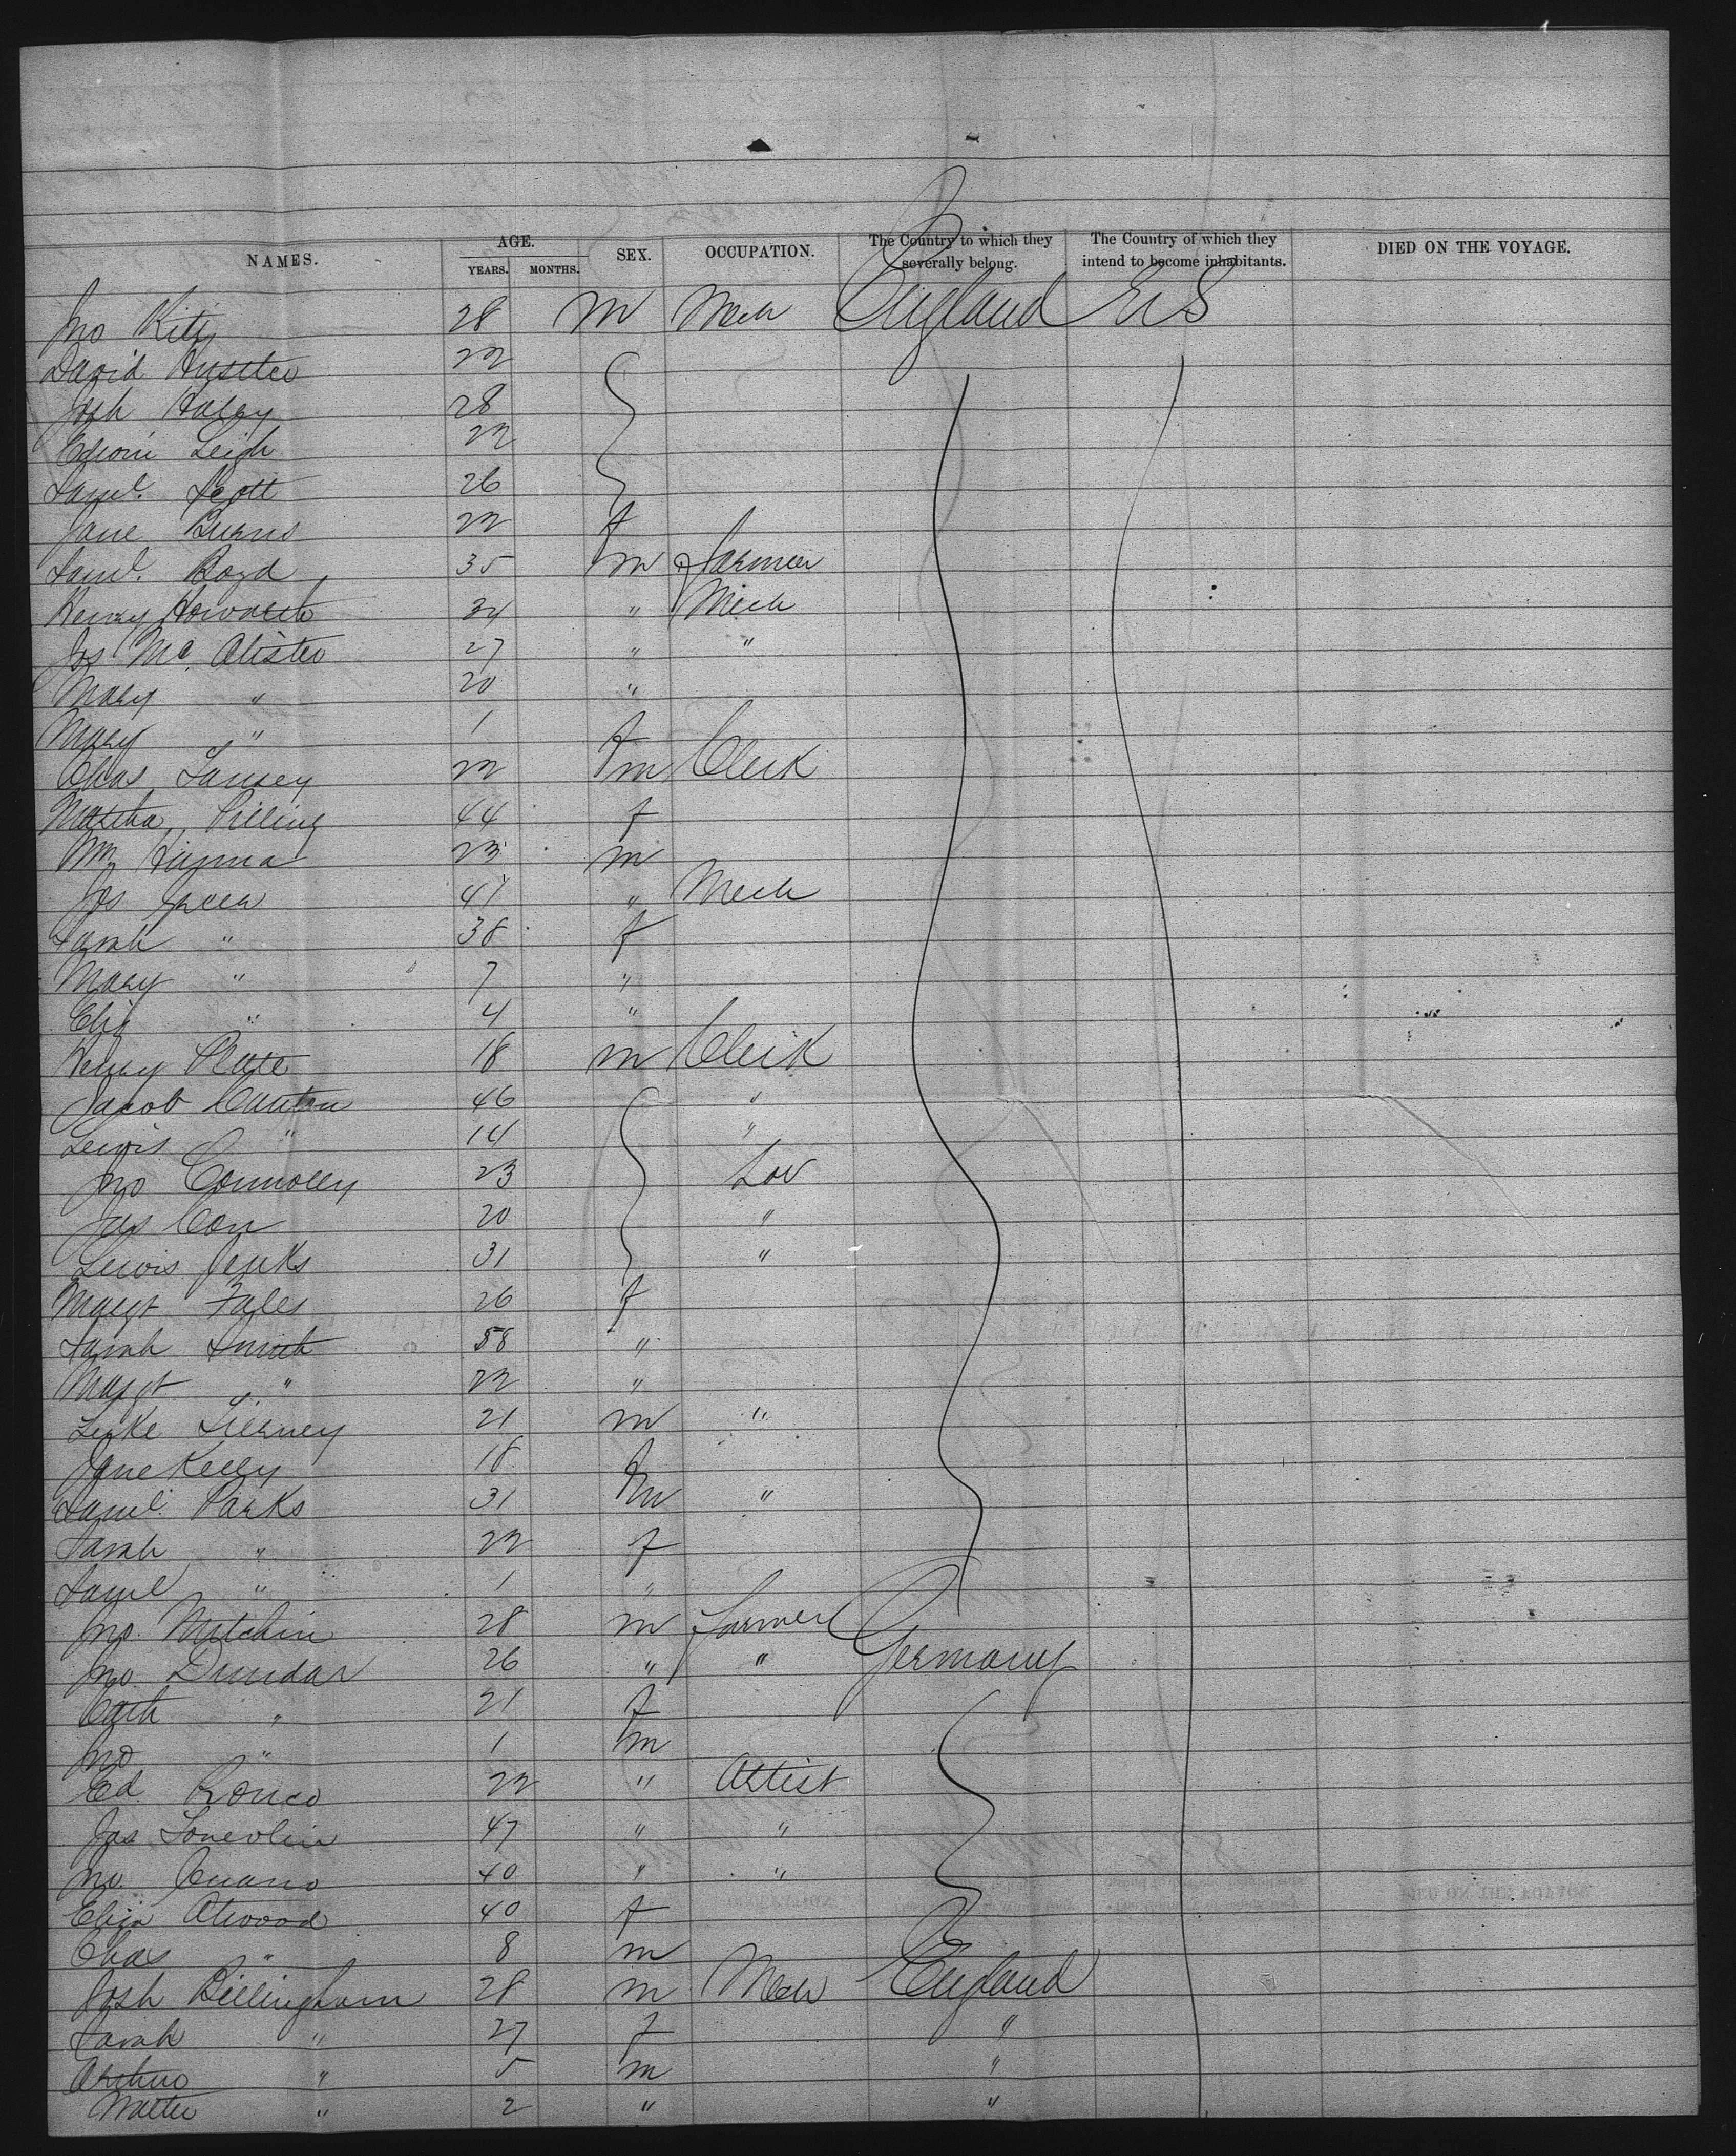 NAMES. AGE. YEARS. MONTHS. SEX. OCCUPATION. The Country to which they severally belong. The Country of which they intend to become inhabitants. DIED ON THE VOYAGE.
Jno 28 m Mech England U S
David 22
Josh Haley 28
Edwin Leigh 22
Saml. Scott 26
Jane Burns 22 f
Saml. Boyd 35 m Farmer
Henry Howarth 34 " Mech
Jos Mc Alister 27 " "
Mary " 20 "
Mary " 1 f
Chas 22 m Clerk
Martha Pilling 44 f
Wm Hanna 23 m
Jos Green 41 " Mech
Sarah " 38 f
Mary " 7 "
Eliz " 4 "
Henry 18 m Clerk
Jacob 46 "
Lewis " 14 "
Jno Connolly 23 Lab
Jas 20 "
Lewis Jenks 31 "
Margt Fales 26 f
Sarah Smith 58 "
Margt " 22 "
Luke Tierney 21 m "
Jane Kelly 18 f
Saml. Parks 31 m "
Sarah " 22 f
Saml " 1 "
Jno. 28 m Farmer
Jno. Dundar 26 " " Germany
Cath " 21 f
Jno " 1 m
Ed. 22 " Artist
Jas 47 " "
Jno. 40 " "
Eliza Atwood 40 f
Chas " 8 m
Josh Billingham 28 m Mech England
Sarah " 27 f "
Arthur " 5 m "
Walter " 2 " "